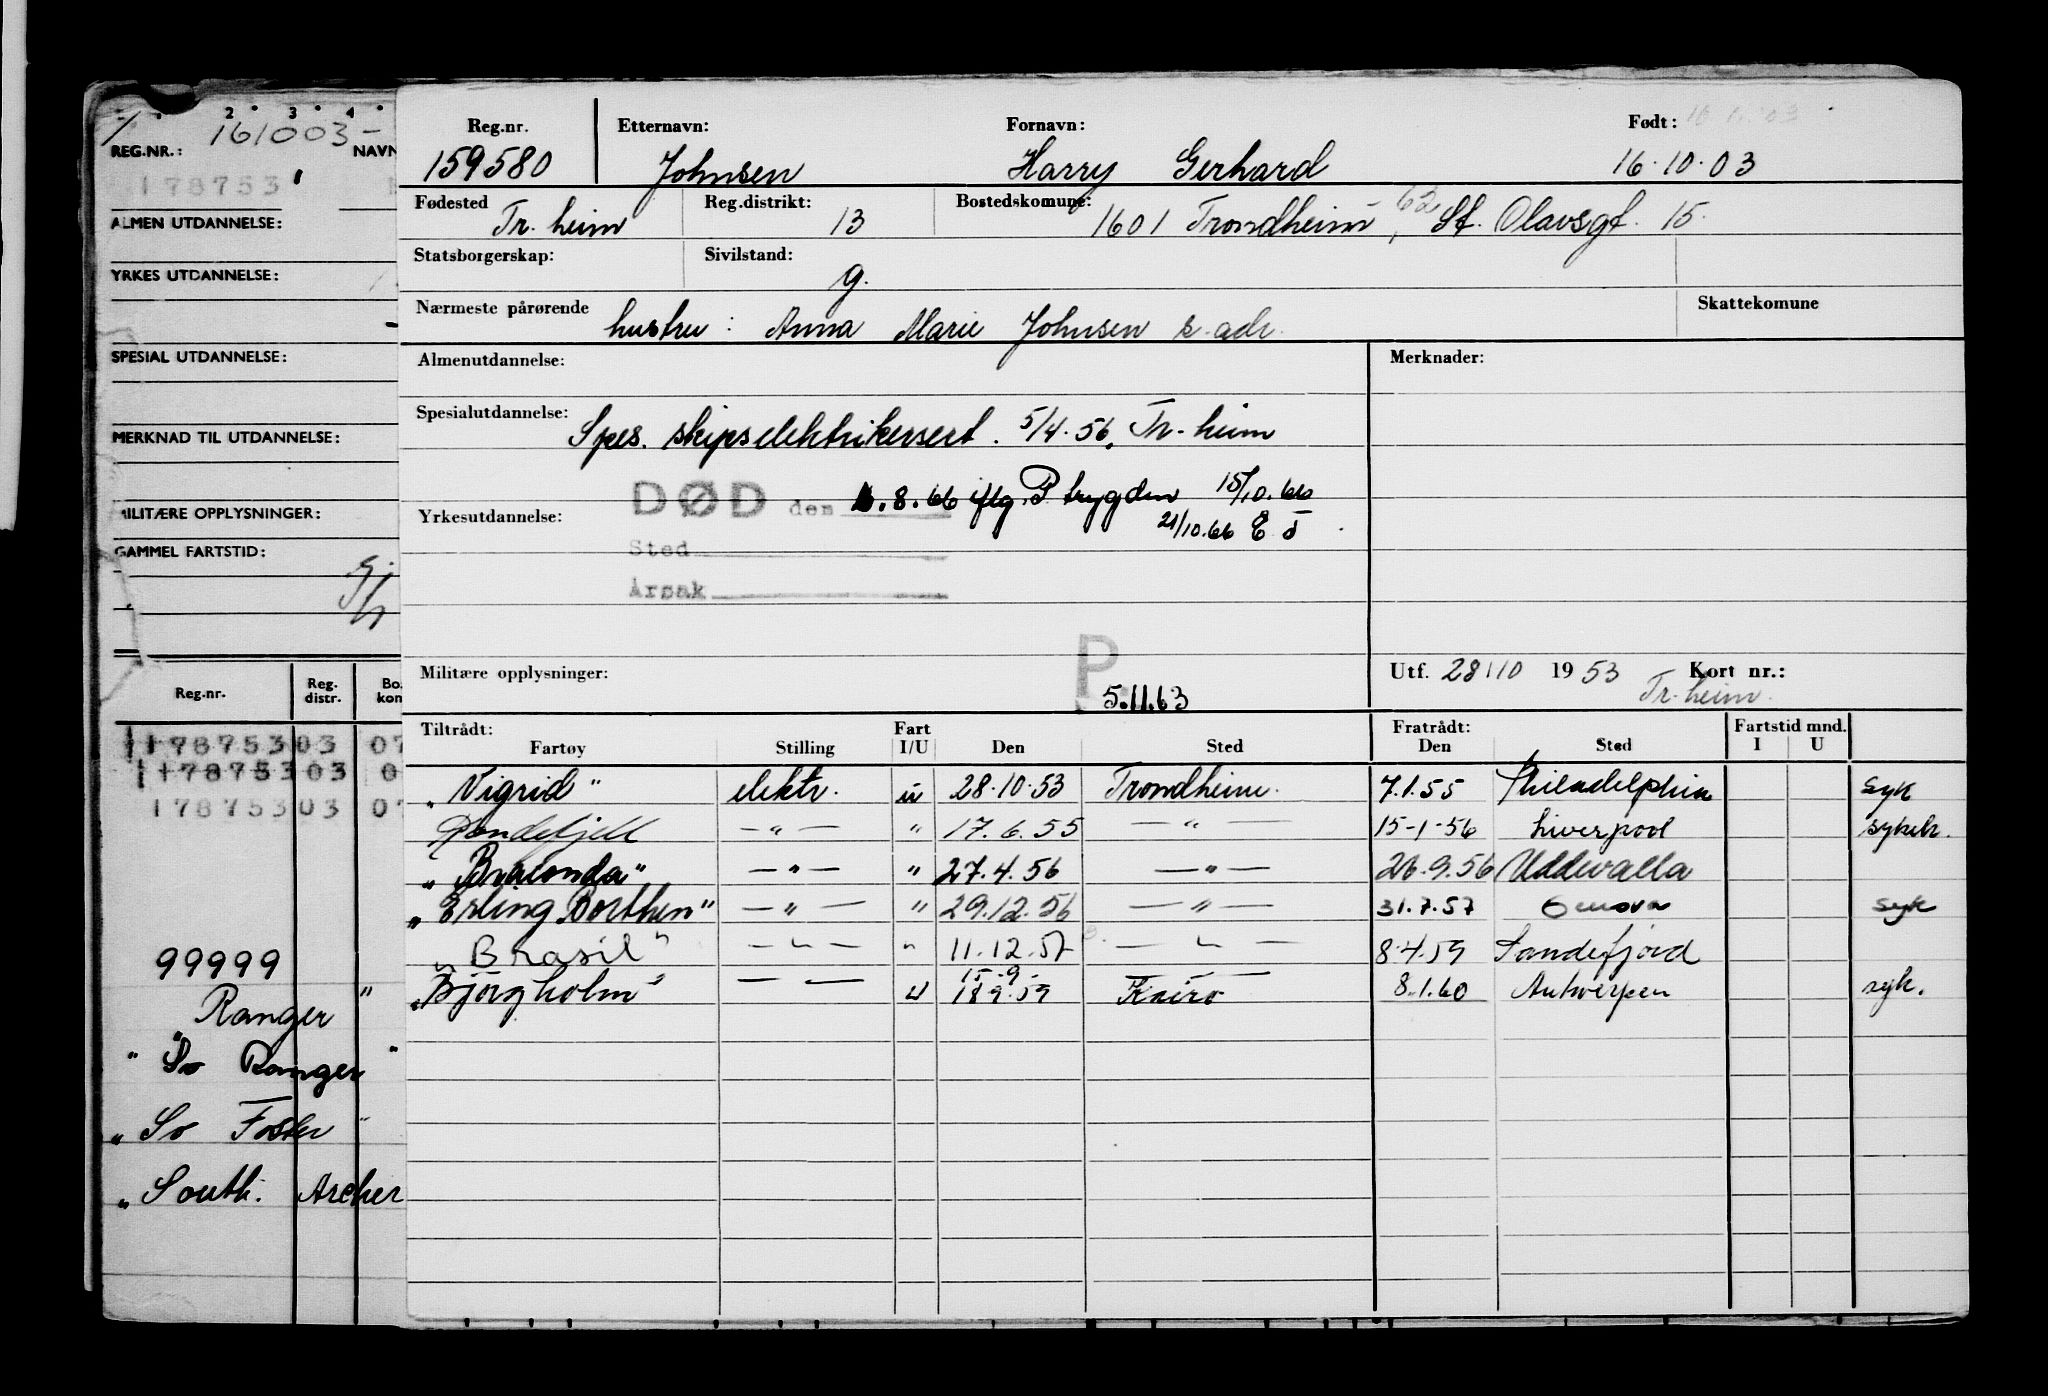 2 3 4
161003-
REG.NR.: NAVN
178753
ALMEN UTDANNELSE:
YRKES UTDANNELSE:
SPESIAL UTDANNELSE:
MERKNAD TIL UTDANNELSE:
MILITÆRE OPPLYSNINGER:
GAMMEL FARTSTID:
Reg.nr. Reg. distr. Bo. kom
178753 03 07
178753 03 0
178753 03 07
99999
Ranger "
" So Ranger "
" So Foster "
" South. Archer
Reg.nr. Etternavn: Fornavn: Født:
159580 Johnsen Harry Gerhard 16.10.03
Fødested Tr.heim Reg.distrikt: 13 Bostedskomune: 1601 Trondheim, 62 St. Olavsgt. 15.
Statsborgerskap: Sivilstand: g.
Nærmeste pårørende hustru: Anna Marie Johnsen s. adr. Skattekomune
Almenutdannelse: Merknader:
Spesialutdannelse: Spes. skipselektrikersert. 5/4.56, Tr.heim
DØD den 6.8.66 iflg. P.trygden 15/10.66
Yrkesutdannelse: 21/10.66
Sted
Årsak
P
Militære opplysninger: 5.11.63 Utf. 28/10 1953 Kort nr.:
Tr.heim.
Tiltrådt: Fart Fratrådt: Fartstid mnd.
Fartøy Stilling I/U Den Sted Den Sted I U
"Vigrid" elektr. u 28.10.53 Trondheim. 7.1.55 Philadelphia syk
Randefjell -"- " 17.6.55 -"- 15-1-56 Liverpool sykeh.
"Bralonda" -"- " 27.4.56 -"- 26.9.56 Uddevalla
"Erling Borthen" -"- " 29.12.56 -"- 31.7.57 Genova syk
"Brasil" -"- " 11.12.57 -"- 8.4.59 Sandefjord
15-9-
"Bjørgholm" -"- U 18.9.59 Kairo 8.1.60 Antwerpen syk.